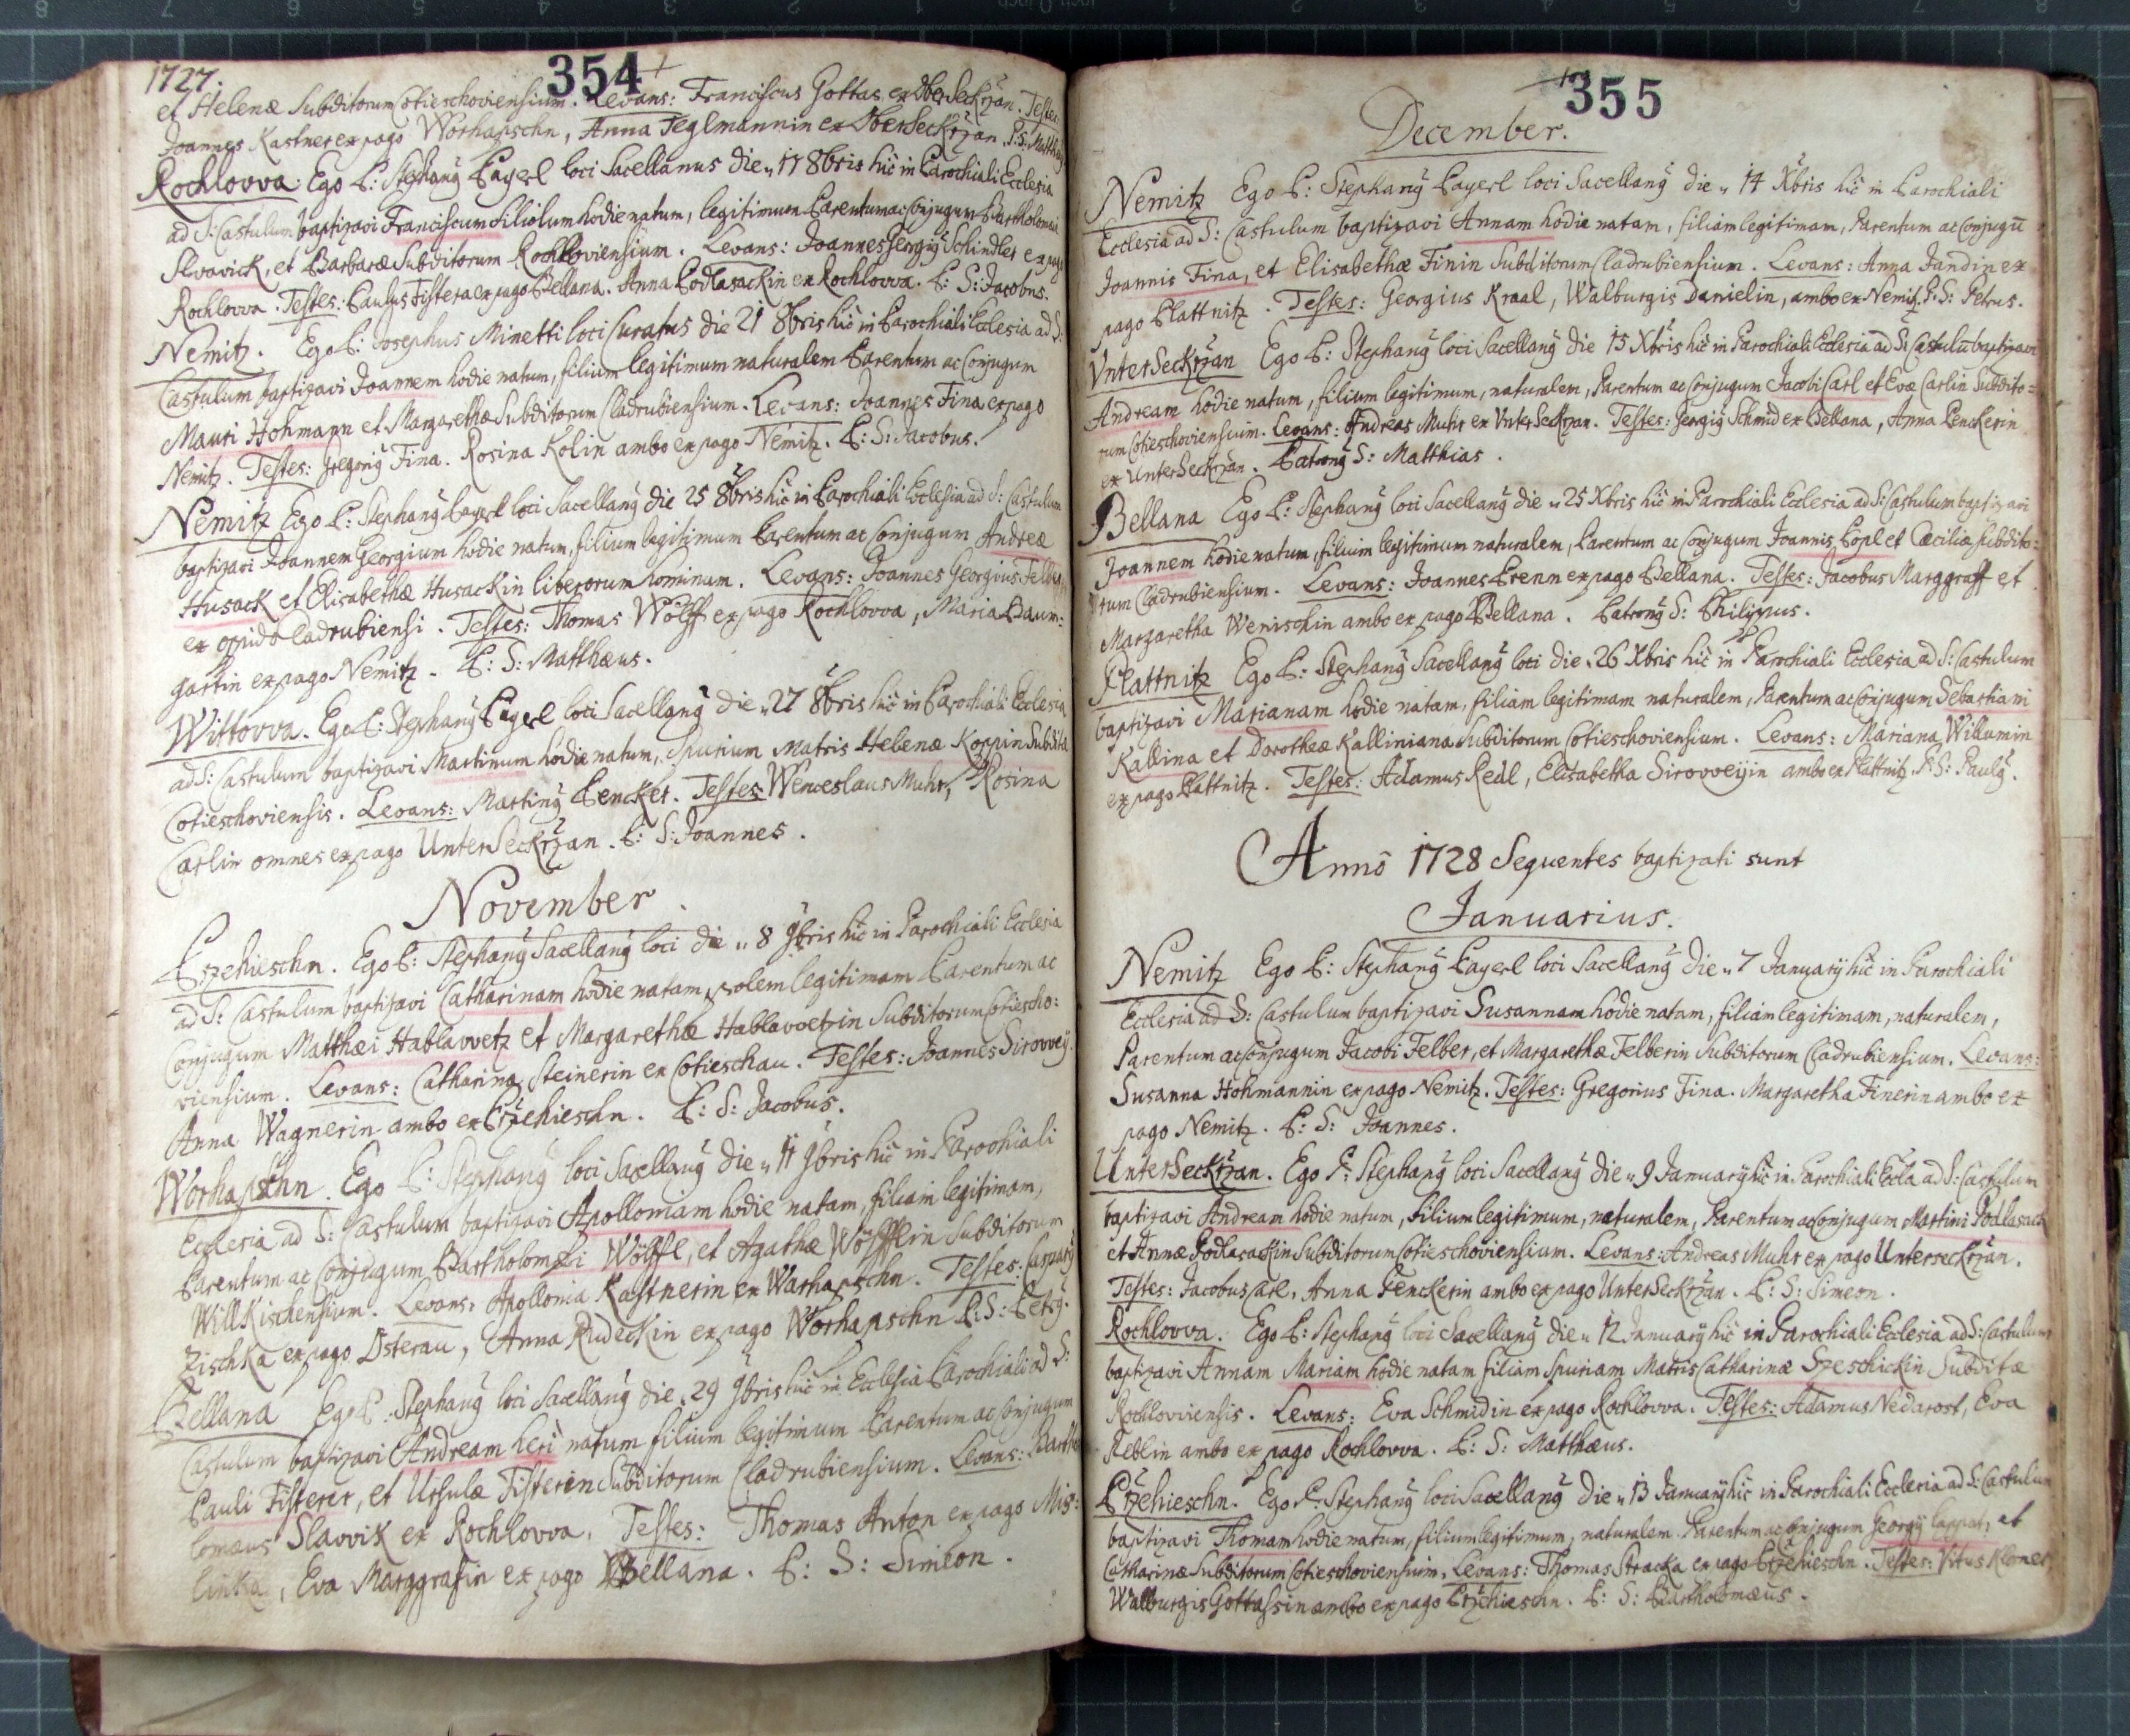 1727.
354
et Helenæ Subditorum Cotieschoviensium. Levans: Franciscus Gottas ex OberSeckrzan. Testes:
Joannes Kastner ex pago Worhapschn, Anna Feglmannin ex OberSeckrzan. P: S: Matthæus
Rochlovva. Ego P: Stephang Payerl loci Sacellanus die „ 17 8bris hic in Parochiali Ecclesia
ad S: Castulum baptizavi Franciscum filiolum hodie natum, legitimum Parentum ac Conjugum Bartholomæi
Slvavick, et Barbaræ Subditorum Rochloviensium. Levans: Joannes Georgig Schindler ex pago
Rochlovva. Testes: Paulus Fistera ex pago Bellana. Anna Podlasackin ex Rochlovva. P: S: Jacobus.
Nemitz. Ego P: Josephus Minetti loci Curatus die 21 8bris hic in Parochiali Ecclesia ad S:
Castulum baptizavi Joannem hodie natum, filium legitimum naturalem Parentum ac Conjugum
Mauri Hohmann et Margarethæ Subditorum Cladrubiensium. Levans: Joannes Fina ex pago
Nemitz. Testes: Gregorig Fina. Rosina Kolin ambo ex pago Nemitz. P: S: Jacobus.
Nemitz Ego P: Stephang Payerl loci Sacellang die 25 8bris hic in Parochiali Ecclesia ad S: Castulum
baptizavi Joannem Georgium hodie natum, filium legitimum Parentum ac Conjugum Andreæ
Husack et Elisabethæ Husackin liberorum hominum. Levans: Joannes Georgius Felber
ex oppido Cladrubiensi. Testes: Thomas Wölff ex pago Rochlovva, Maria Baum:
gartin ex pago Nemitz. P: S: Matthæus.
Wittovva. Ego P: Stephang Payerl loci Sacellang die „ 27 8bris hic in Parochiali Ecclesia
ad S: Castulum baptizavi Martinum hodie natum, spurium Matris Helenæ Koppin Subditæ
Cotieschoviensis. Levans: Marting Pencker. Testes: Wenceslaus Muhr, Rosina
Carlin omnes ex pago UnterSeckrzan. P: S: Joannes.
November.
Przehieschn. Ego P: Stephang Sacellang loci die „ 8 9bris hic in Parochiali Ecclesia
ad S: Castulum baptizavi Catharinam hodie natam, prolem legitimam Parentum ac
Conjugum Matthæi Hablavvetz et Margarethæ Hablavvetzin Subditorum Cotiescho:
viensium. Levans: Catharina Steinerin ex Cotieschau. Testes: Joannes Sirovvey.
Anna Wagnerin ambo ex Przehieschn. P: S: Jacobus.
Worhapschn. Ego P: Stephang loci Sacellang die „ 11 9bris hic in Parochiali
Ecclesia ad S: Castulum baptizavi Apolloniam hodie natam, filiam legitimam,
Parentum ac Conjugum Bartholomæi Wölffl, et Agathæ Wölfflin Subditorum
Willkischensium. Levans: Apollonia Kastnerin ex Warhapschn. Testes: Casparg
Zischka ex pago Osterau, Anna Rudeckin ex pago Worhapschn P: S: Petrg.
Bellana Ego P: Stephang loci Sacellang die „ 29 9bris hic in Ecclesia Parochiali ad S:
Castulum baptizavi Andream heri natum filium legitimum Parentum ac Conjugum
Pauli Fisterer, et Ursulæ Fisterin Subditorum Cladrubiensium. Levans: Bartho
lomæus Slavvik ex Rochlovva. Testes: Thomas Anton ex pago Mis:
linka, Eva Marggrafin ex pago Bellana. P: S: Simeon.
355
December.
Nemitz Ego P: Stephang Payerl loci Sacellang die „ 14 Xbris hic in Parochiali
Ecclesia ad S: Castulum baptizavi Annam hodie natam, filiam legitimam, Parentum ac Conjugū
Joannis Fina, et Elisabethæ Finin Subditorum Cladrubiensium. Levans: Anna Jandin ex
pago Plattnitz. Testes: Georgius Kraal, Walburgis Danielin, ambo ex Nemitz. P: S: Petrus.
UnterSeckrzan Ego P: Stephang loci Sacellang die 15 Xbris hic in Parochiali Ecclesia ad S: Castulū baptizavi
Andream hodie natum, filium legitimum, naturalem, Parentum ac Conjugum Jacobi Carl et Evæ Carlin Subdito=
rum Cotieschoviensium. Levans: Andreas Muhr ex UnterSeckrzan. Testes: Georgig Schmid ex Bellana, Anna Penckerin
ex UnterSeckrzan. Patrong S: Matthias.
Bellana Ego P: Stephang loci Sacellang die „ 25 Xbris hic in Parochiali Ecclesia ad S: Castulum baptizavi
Joannem hodie natum filium legitimum naturalem, Parentum ac Conjugum Joannis Popl et Cæciliæ Subdito:
rum Cladrubiensium. Levans: Joannes Prenn ex pago Bellana. Testes: Jacobus Marggraff et
Margaretha Wenischin ambo ex pago Bellana. Patrong S: Philippus.
Plattnitz Ego P: Stephang Sacellang loci die „ 26 Xbris hic in Parochiali Ecclesia ad S: Castulum
baptizavi Marianam hodie natam, filiam legitimam naturalem, Parentum ac Conjugum Sebastiani
Kallina et Dorotheæ Kalliniana Subditorum Cotieschoviensium. Levans: Mariana Willumin
ex pago Plattnitz. Testes: Adamus Redl, Elisabetha Sirovveyin ambo ex Plattnitz. P: S: Paulg.
Annô 1728 Sequentes baptizati sunt
Januarius.
Nemitz Ego P: Stephang Payerl loci Sacellang die „ 7 Januarij hic in Parochiali
Ecclesia ad S: Castulum baptizavi Susannam hodie natam, filiam legitimam, naturalem,
Parentum ac Conjugum Jacobi Felber, et Margarethæ Felberin Subditorum Cladrubiensium. Levans:
Susanna Hohmannin ex pago Nemitz. Testes: Gregorius Fina. Margaretha Finerin ambo ex
pago Nemitz. P: S: Joannes.
UnterSeckrzan. Ego P: Stephang loci Sacellang die „ 9 Januarij hic in Parochiali Eccla ad S: Castulum
baptizavi Andream hodie natum, filium legitimum, naturalem, Parentum ac Conjugum Martini Podlasack
et Annæ Podlasackin Subditorum Cotieschoviensium. Levans: Andreas Muhr ex pago Unterseckrzan.
Testes: Jacobus Carl, Anna Penckerin ambo ex pago UnterSeckrzan. P: S: Simeon.
Rochlovva. Ego P: Stephang loci Sacellang die „ 12 Januarij hic in Parochiali Ecclesia ad S: Castulum
baptizavi Annam Mariam hodie natam filiam spuriam Matris Catharinæ Szeschickin Subditæ
Rochloviensis. Levans: Eva Schmidin ex pago Rochlovva. Testes: Adamus Nedarost, Eva
Reblin ambo ex pago Rochlovva. P: S: Matthæus.
Przehieschn. Ego P: Stephang loci Sacellang die „ 13 Januarij hic in Parochiali Ecclesia ad S: Castulum
baptizavi Thomam hodie natum, filium legitimum, naturalem Parentum ac Conjugum Georgij Lappat, et
Catharinæ Subditorum Cotieschoviensium. Levans: Thomas Stracka ex pago Przehieschn. Testes: Vitus Kloner,
Walburgis Gottassin ambo ex pago Przehieschn. P: S: Bartholomæus.